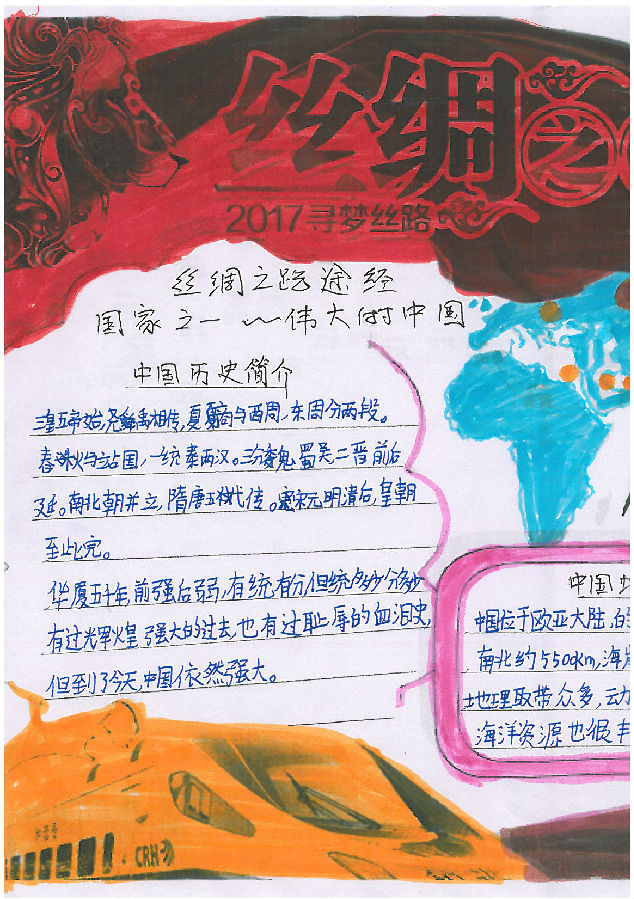 丝绸之
2017寻梦丝路
丝绸之路途经
国家之一~伟大的中国
中国历史简介
三皇五帝始,尧舜禹相传,夏商与西周,东周分两段。
春秋与战国,一统秦两汉。三分魏蜀吴二晋前后
延。南北朝并立,隋唐五代传。宋元明清后,皇朝
至此完。
华厦五千年,前强后弱,有统有分,但统多少分多少
有过光辉火皇强大的过去,也有过耻辱的血泪史,
但到了今天,中国依然强大。
中国
中国位于欧亚大陆,的
南北约5500km,海岸
地理取带众多,动
海洋资源也很丰
CRH